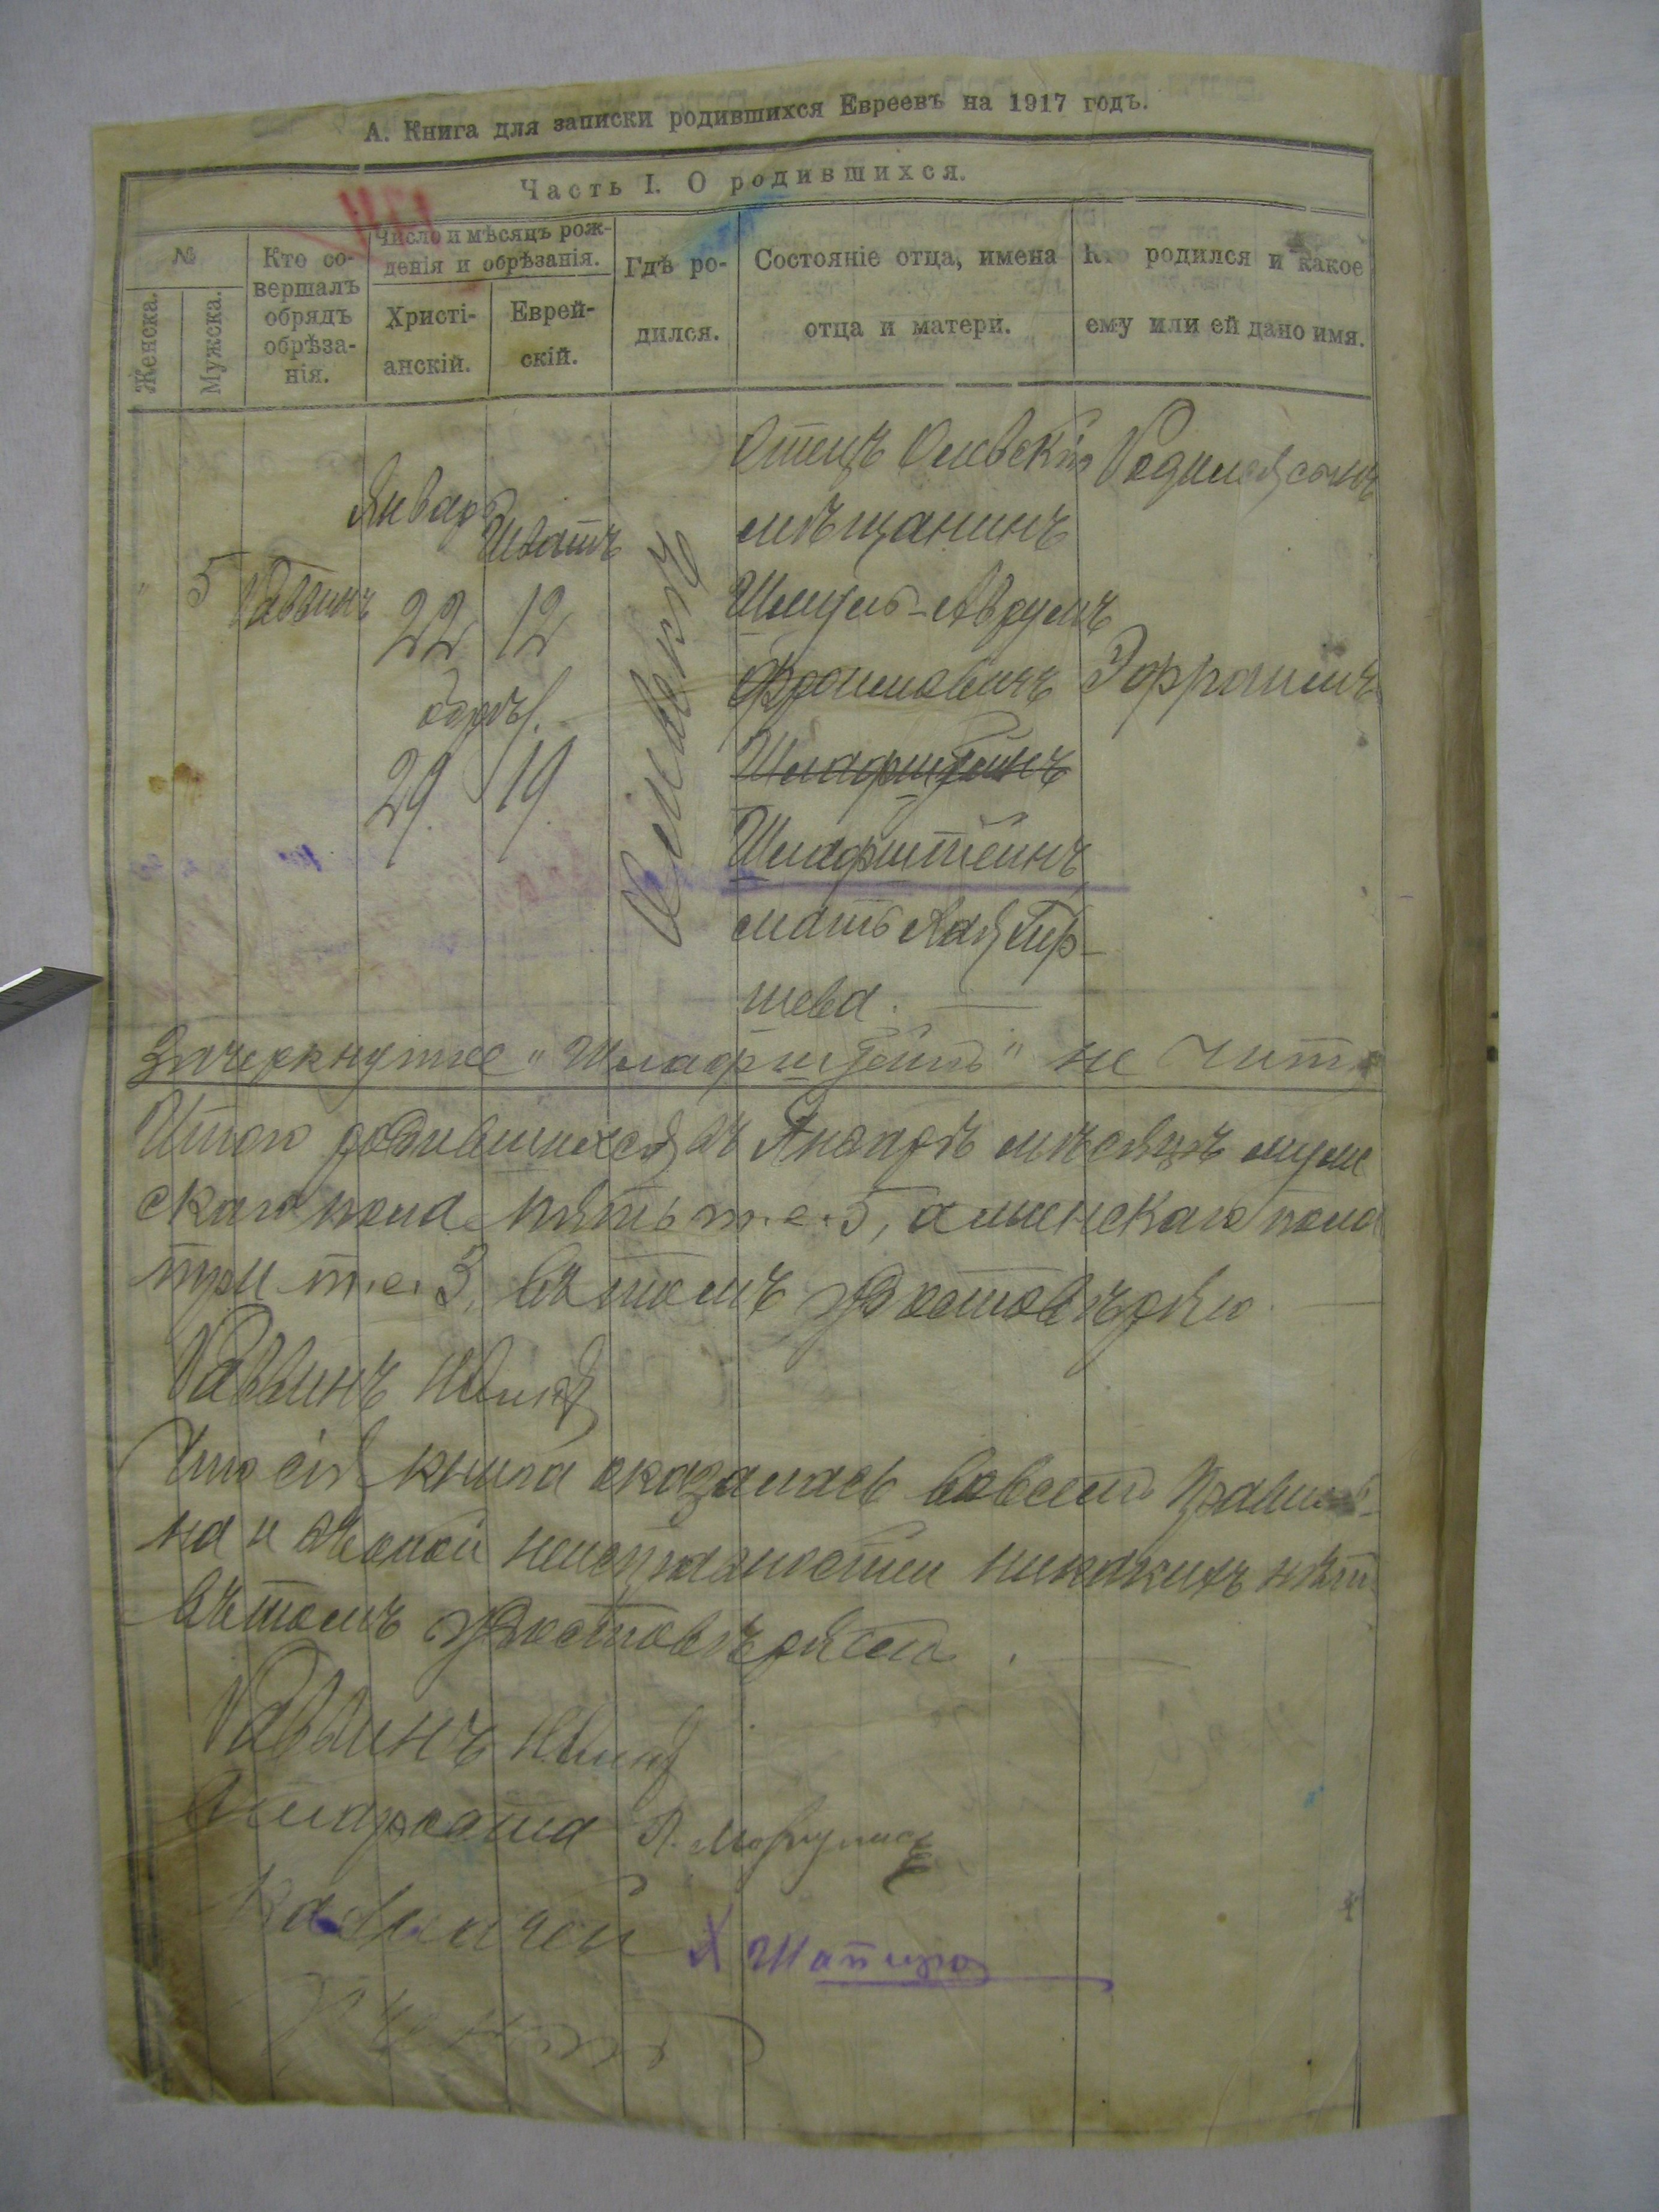 А. Книга для записки родившихся Евреевъ на 1917 годъ.
Часть I. О родившихся.
№
Женска.
Мужска.
Кто со-
вершалъ
обрядъ
обрѣза-
нія.
Число и мѣсяцъ рож-
денія и обрѣзанія.
Христі-
анскій.
Еврей-
скій.
Гдѣ ро-
дился.
Состояніе отца, имена
отца и матери.
Кто родился и какое
ему или ей дано имя.
5
Раввинъ
Январь
22
обрѣз.
29
Шватъ
12
19
Олевскъ
Отецъ Олевскій
мѣщанинъ
Шмуль-Аврумъ
Фроимовичъ
Шлафштейнъ
мать Хая Гир-
шева.
Родился сынъ
Эфроимъ
Зачеркнутое "Шлафштейнъ" не чит.
Итого родившихся въ Январѣ мѣсяцѣ муж
скаго пола пять т.е. 5, а женскаго пола
три т.е. 3, въ томъ удостовѣряю.
Раввинъ
Что сія книга оказалась во всемъ правиль-
на и въ оной неисправностей никакихъ нѣтъ
въ томъ удостовѣряемъ.
Раввинъ
Староста
Казначей Х Шапиро